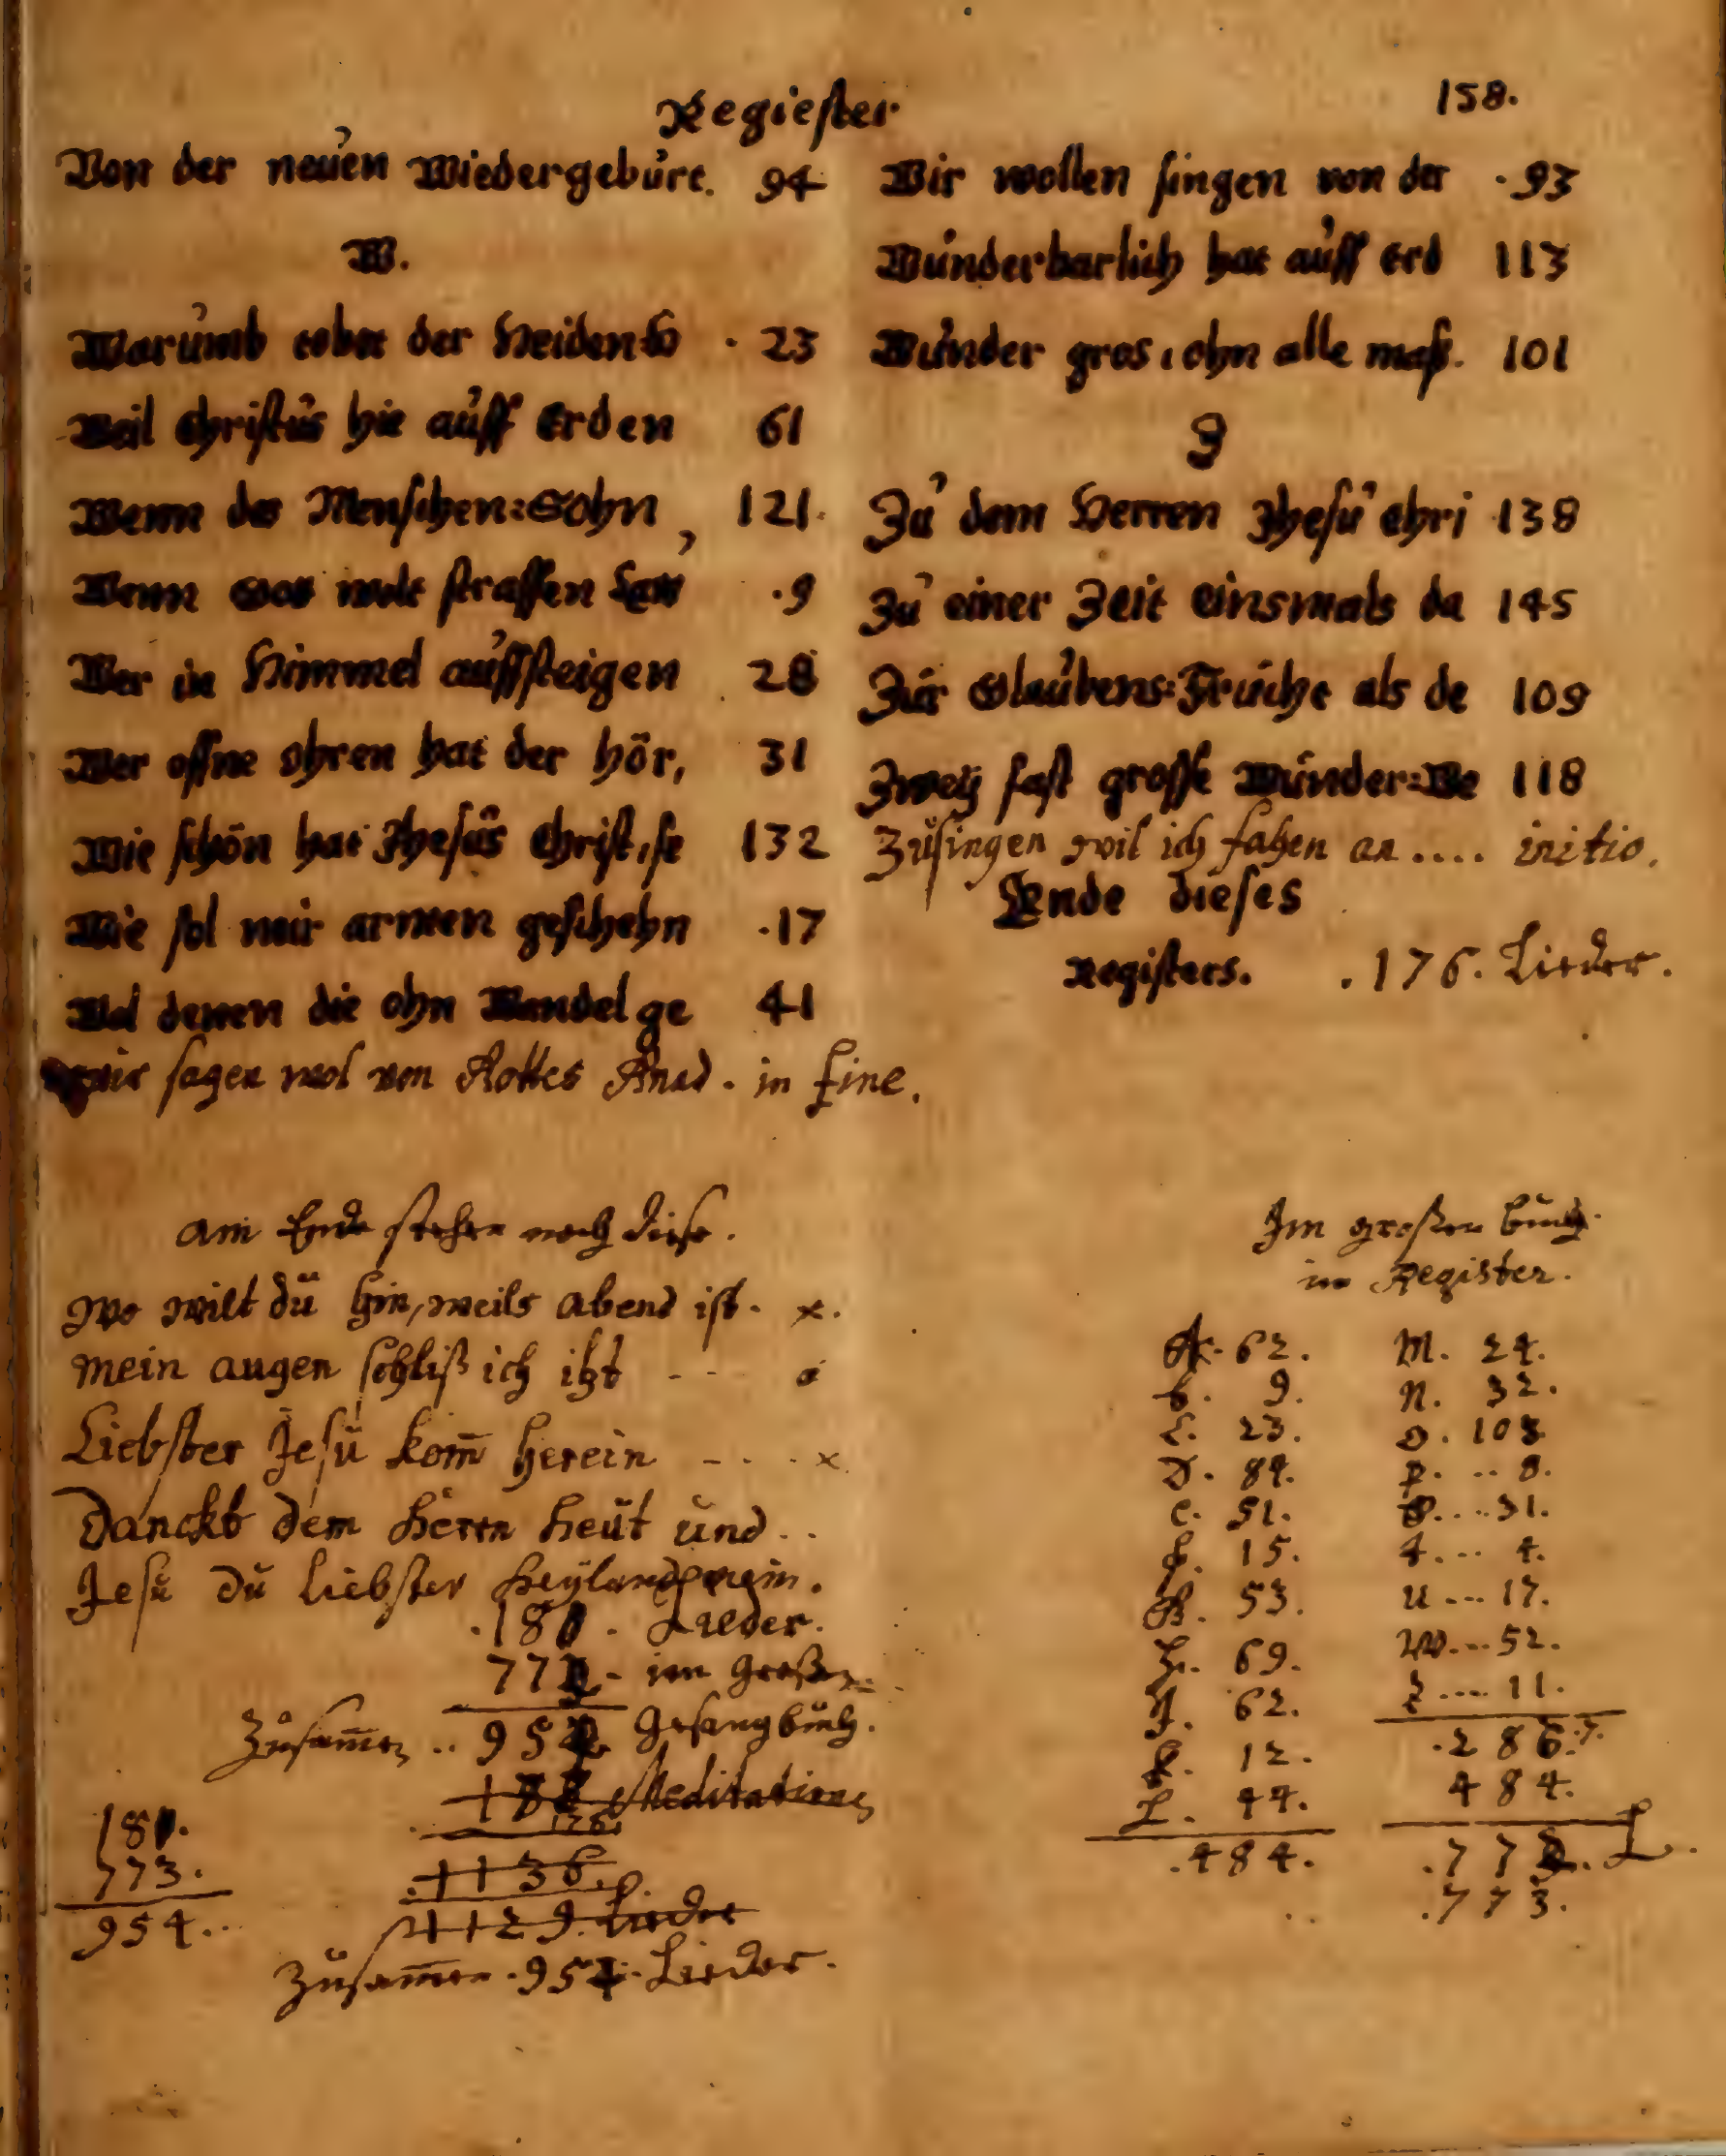 Regiester
158.
Von der neuen Wiedergeburt. 94
W.
Warumb tobet der Heiden h 23
Weil Christus hie auff Erden 61
Wenn des Menschen=Sohn, 121.
Wenn Gott wolt straffen .9
Wer in Himmel auffsteigen 28
Wer offne ohren hat der hör, 31
Wie schön hat Jhesus Christ, se 132
Wie sol mir armen geschehn .17
Wol denen die ohn Wandel ge 41
wir sagen wol von Gottes Gnad. in fine.
Wir wollen singen von der .93
Wunderbarlich hat auff Erd 113
Wunder gros, ohn alle maß. 101
Z
Zu dem Herren Jhesu Chri 138
Zu einer Zeit einsmals da 145
Zur Glaubens=Frücht als de 109
Zweÿ fast grosse Wunder=We 118
Zusingen wil ich fahen an .... initio.
Ende dieses
Registers. .176. Lieder.
am Ende stehen noch diese.
wo wilt du hin, weils abend ist. x.
mein augen schließ ich itzt - - -
Liebster Jesu kom̄ herein - . . . x.
Danckt dem Herrn heut und . .
Jesu du liebster Heyland mein.
.181. Lieder.
773 - im großen
Zusam̄en .. 954 Gesangbuch.
Meditationes
176.
1136.
1129. Lieder
Zusam̄en .954. Lieder.
181.
773.
954...
Im großen buch
im Register.
A. 62.
b. 9.
C. 23.
D. 84.
E. 51.
F. 15.
G. 53.
H. 69.
J. 62.
K. 12.
L. 44.
.484.
M. 24.
N. 32.
O. 108
P. .. 8.
S. ... 31.
T. ... 4.
U --- 17.
W. ... 52.
Z .... 11.
.286.7.
484.
.77
.773.